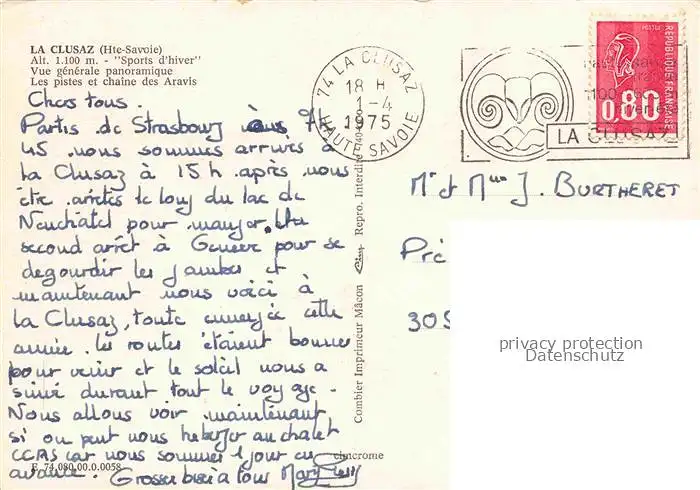 LA CLUSAZ (Hte-Savoie)
Alt. 1.100 m. - "Sports d'hiver"
Vue générale panoramique
Les pistes et chaîne des Aravis
Chers tous.
Partis de Strasbourg à
45 nous sommes arrivés à
la Clusaz à 15h après nous
être arrêtés le long du lac de
Neuchâtel pour manger. Un
second arrêt à Genève pour se
degourdir les jambes et
maintenant nous voici à
la Clusaz, toute enneigée cette
année. les routes étaient bonnes
pour venir et le soleil nous a
suivi durant tout le voyage.
Nous allons voir maintenant
si on peut nous heberger au chalet
CCAS car nous sommes 1 jour en
avance. Grosses bises à tous
E 74.080.00.0.0058
cimcrome
Combier Imprimeur Mâcon Cim Repro. Interdite
74 LA CLUSAZ
18 H
1-4
1975
HAUTE SAVOIE
LA CLUSAZ
POSTES
RÉPUBLIQUE FRANÇAISE
0,80
Mr et Mme J. BURTHERET
Pré
30
privacy protection
Datenschutz